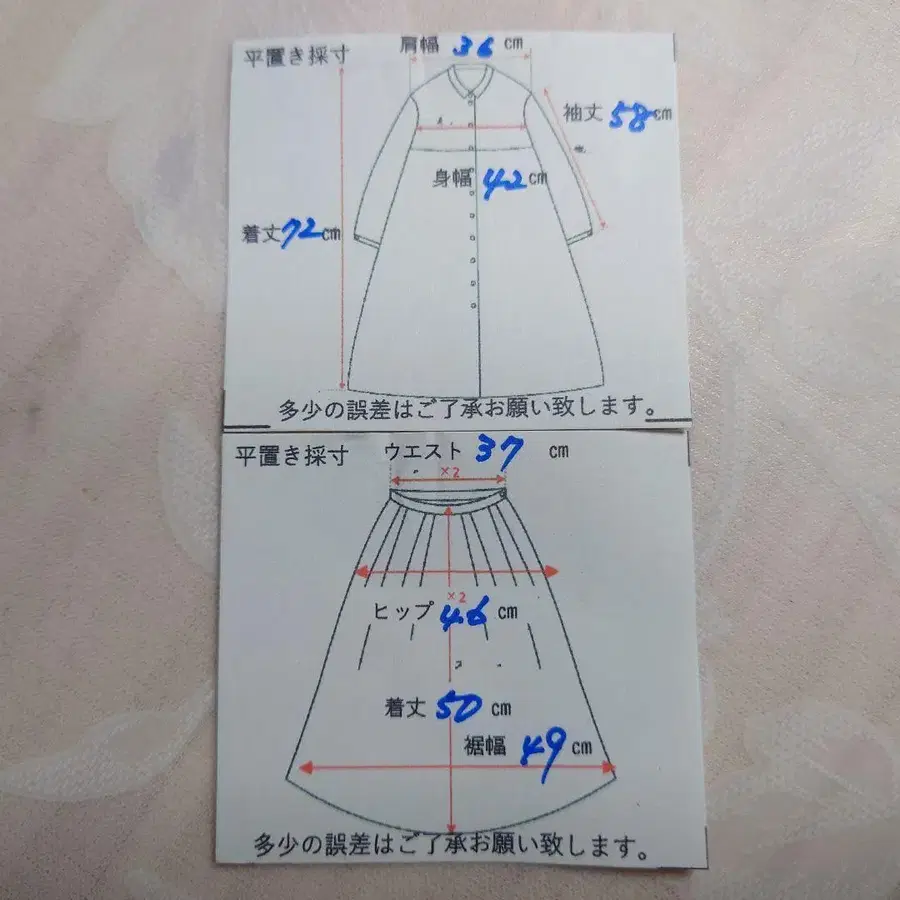 平置き採寸
肩幅 36 cm
袖丈 58cm
身幅 42cm
着丈72cm
多少の誤差はご了承お願い致します。
平置き採寸
ウエスト 37 cm
×2
×2
ヒップ 46 cm
着丈 50 cm
裾幅 49 cm
多少の誤差はご了承お願い致します。